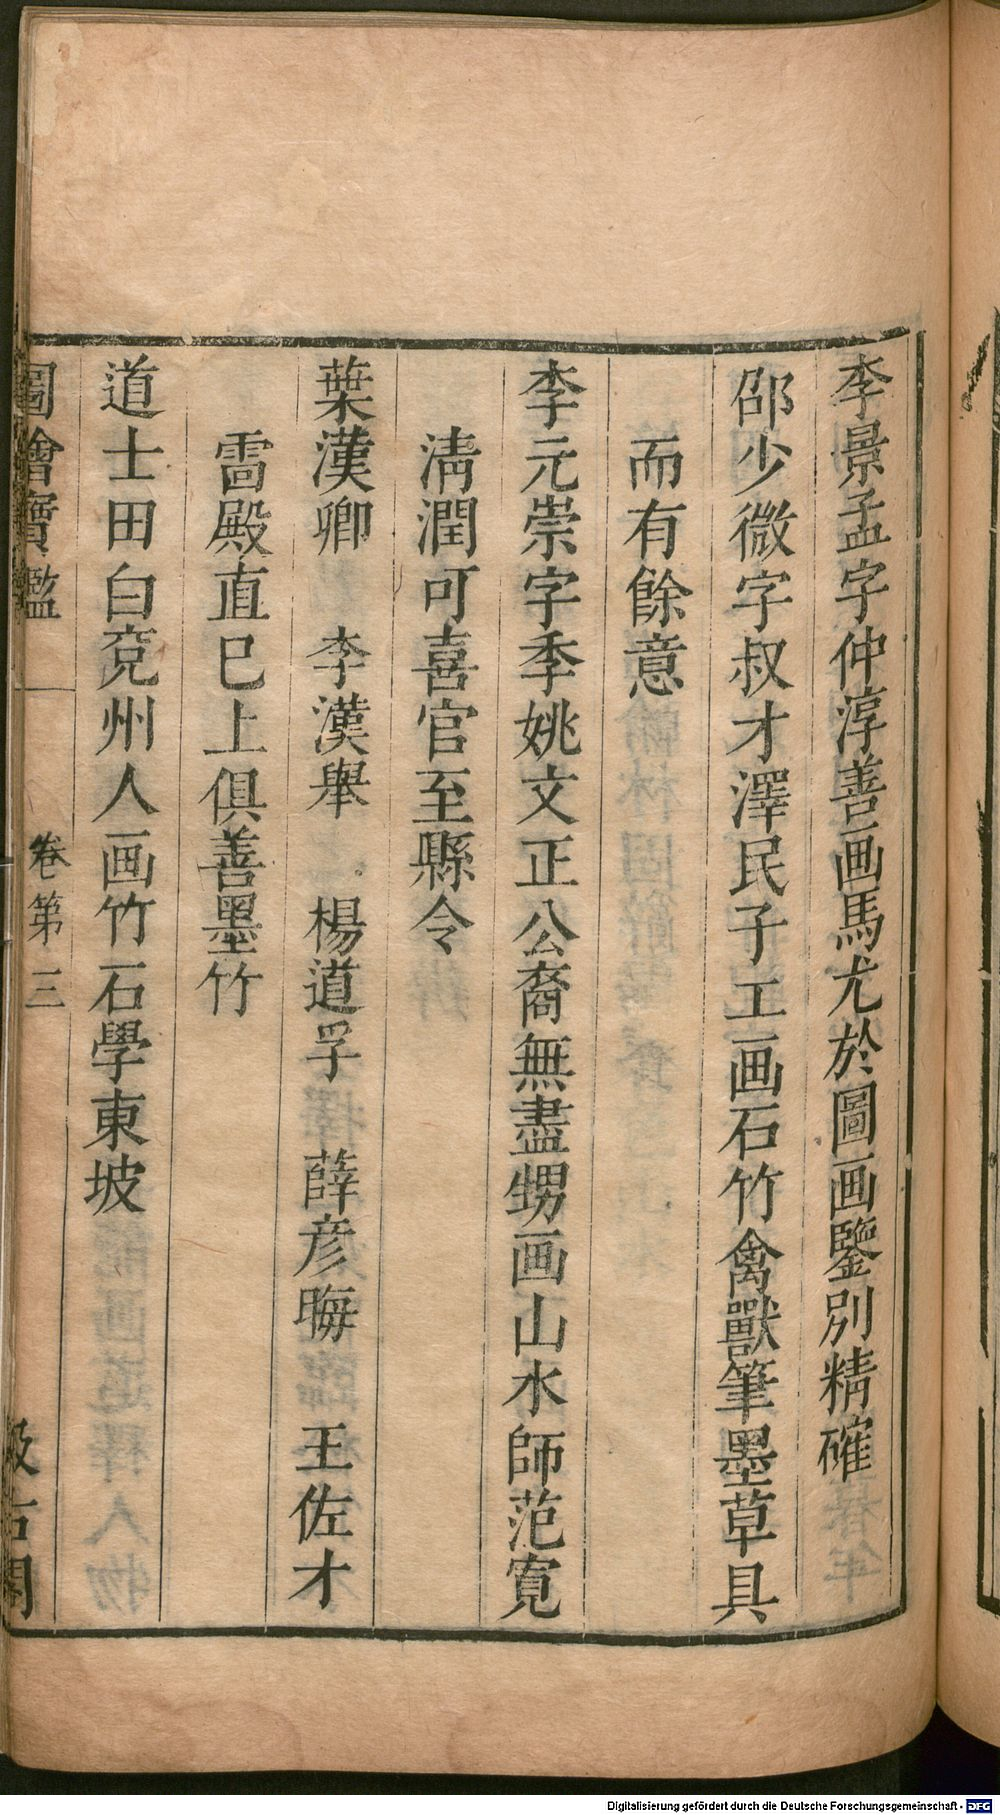 李景孟字仲淳善画馬尤於圖画鑒別精確
邵少微字叔才澤民子工画石竹禽獸筆墨草具
而有餘意
李元崇字季姚文正公裔無盡甥画山水師范寬
淸潤可喜官至縣令
葉漢卿 李漢舉 楊道孚 薛彦晦 王佐才
雷殿直巳上俱善墨竹
道士田白兖州人画竹石學東坡
圖繪寶鑑 卷第三 汲古閣
Digitalisierung gefördert durch die Deutsche Forschungsgemeinschaft - DFG